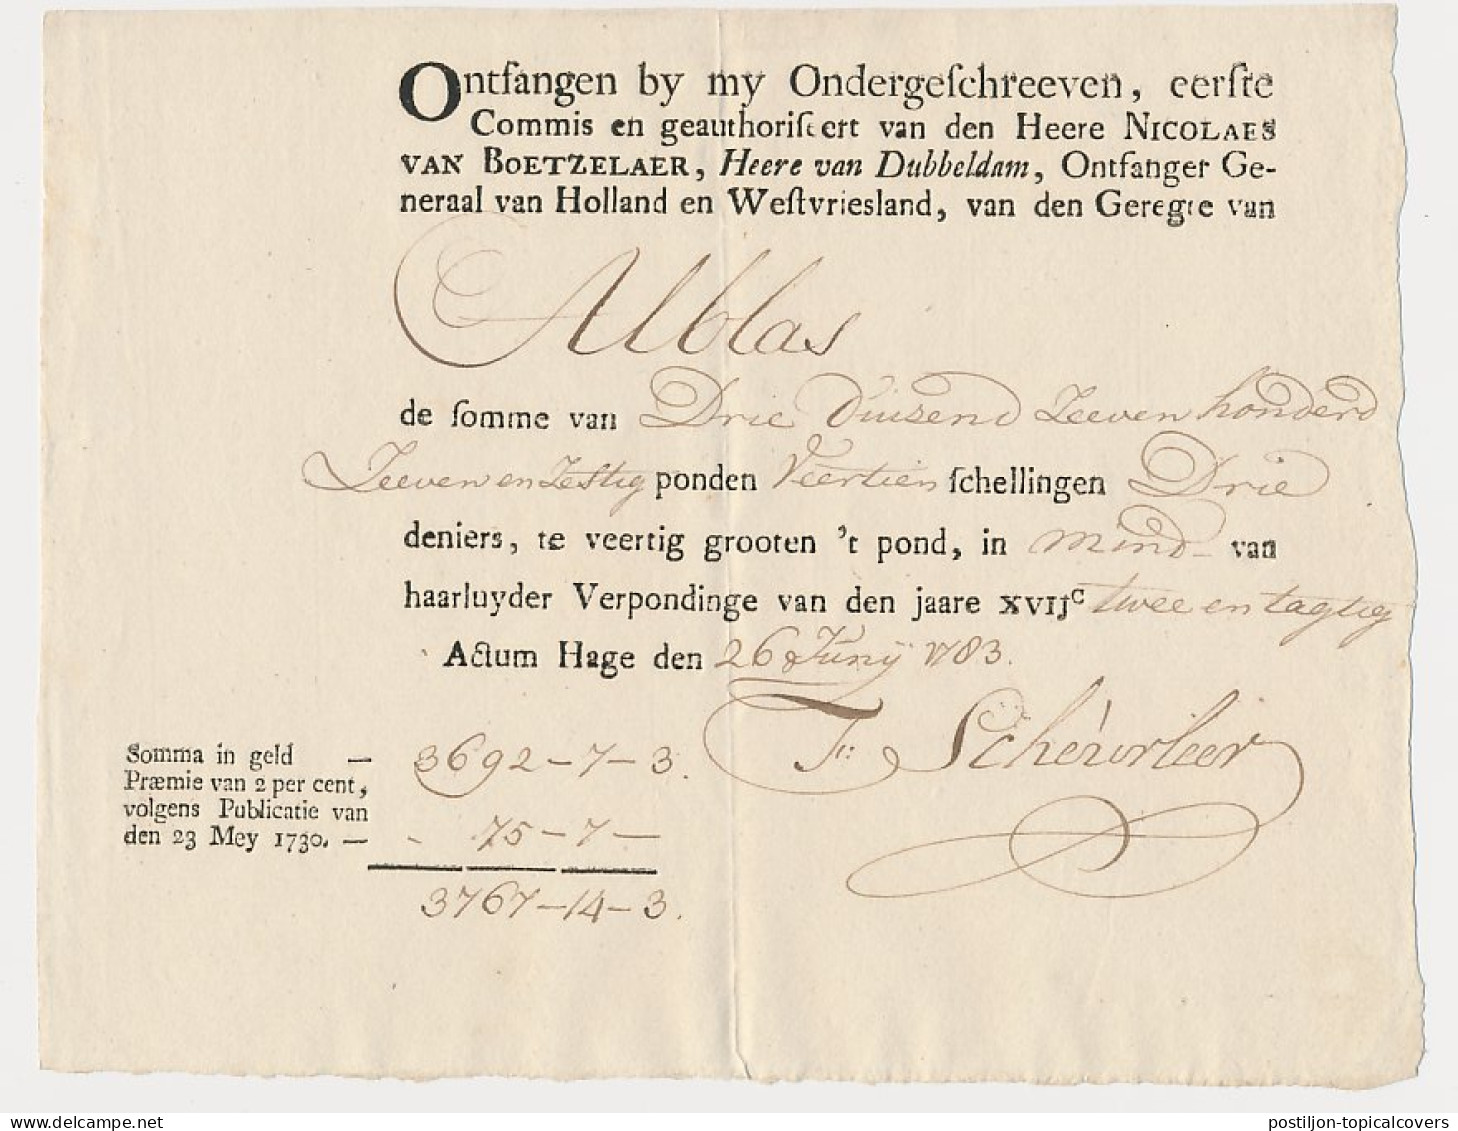 Ontfangen by my Ondergeſchreeven, eerſte
Commis en geauthoriſeert van den Heere NICOLAES
VAN BOETZELAER, Heere van Dubbeldam, Ontfanger Ge-
neraal van Holland en Weſtvriesland, van den Geregte van
Alblas
de ſomme van Drie Duizend Zeeven honderd
Zeeven en Zestig ponden Veertien ſchellingen Drie
deniers, te veertig grooten 't pond, in mind van
haarluyder Verpondinge van den jaare XVIJc twee en tagtig
Actum Hage den 26 Junij 1783.
F: Scheurleer
Somma in geld — 3692-7-3.
Præmie van 2 per cent,
volgens Publicatie van
den 23 Mey 1730. — 75-7-
3767-14-3.
postiljon-topicalcovers
delcampe.net